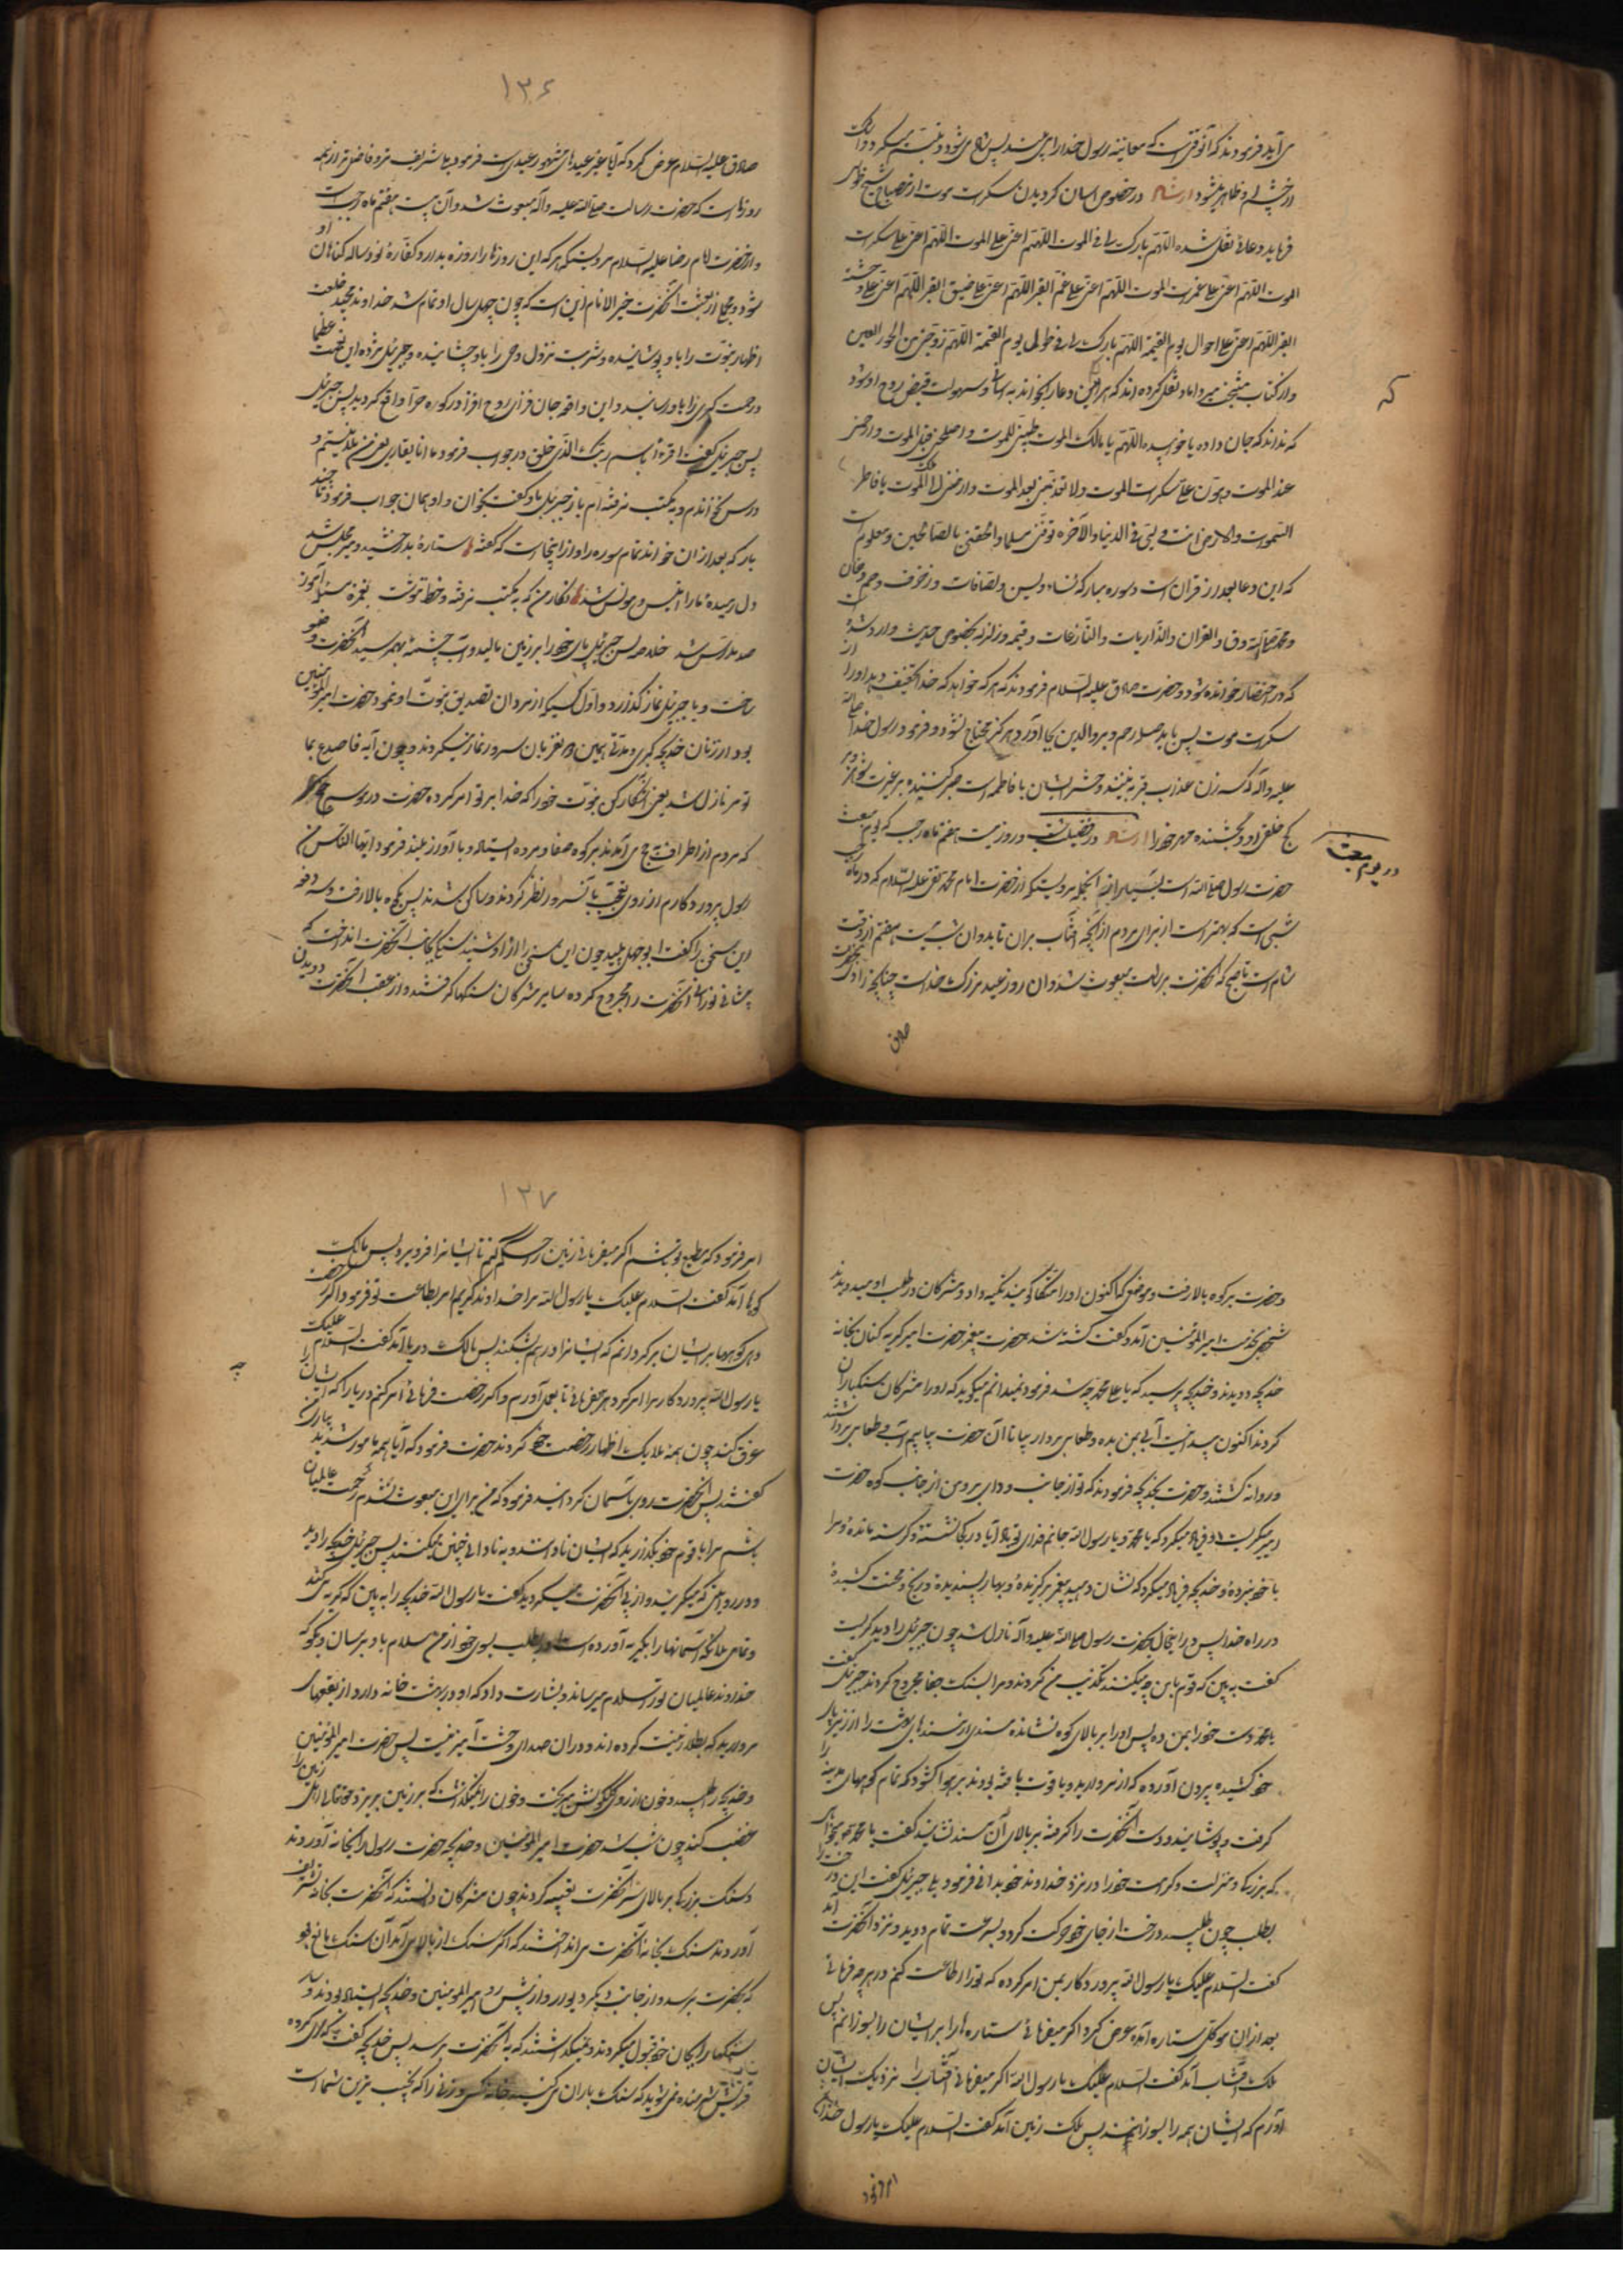 می‌آید فرمودند که آنوقتی است که معاینه رسول خدا را می بیند پس شاد می شود و تبسم میکند و اشک
از چشم او ظاهر میشود ارشاد در خصوص اسان کردیدن سکرات موت از مصباح شیخ طوسی
فرماید دعائی نقل شده اللهم بارک لی فی الموت اللهم اعنی علی الموت اللهم اعنی علی سکرات
الموت اللهم اعنی علی غمرات الموت اللهم اعنی علی غم القبر اللهم اعنی علی ضیق القبر اللهم اعنی علی وحشة
القبر اللهم اعنی علی احوال یوم القیمة اللهم بارک لی فی طول یوم القیمة اللهم زوجنی من الحور العین
و از کتاب میر داماد نقل کرده اند که هر این دعا را بخواند به اسانی و سهولت قبض روح او شود
که
که نداند که جان داده یا خوابیده اللهم یا مالک الموت طیبنی للموت و اصلحنی قبل الموت و ارحمنی
عند الموت و هون علی سکرات الموت و لا تعذبنی بعد الموت و ارض عنی ملک الموت یا فاطر
السموات و الارض انت ولیی فی الدنیا و الاخره توفنی مسلما و الحقنی بالصالحین و معلوم است
که این دعا بعد از قران است و سوره مبارکه نساء و یس و الصافات و زخرف و حم دخان
و محمد و ق و القران و الذاریات و النازعات و قیمه و زلزله بخصوص حدیث وارد شده است
که در احتضار خوانده شود و حضرت صادق علیه السلام فرمودند که هر که خواهد که خدا تخفیف دهد او را از
سکرات موت پس باید صله رحم و بر والدین بجا آورد و هرگز محتاج نشود و فرمود رسول خدا صلی الله
علیه و آله که سه زن عذاب قبر نه بینند و حشر ایشان با فاطمه است صبر کننده بر غیرت شوهر و بر
کج خلقی او و بخشنده مهر خود را ارشاد در فضیلت شب و روز بیست هفتم ماه رجب که یوم مبعث
در یوم مبعث
حضرت رسول صلی الله است بسیار از آنجمله مرویست که از حضرت امام محمد تقی علیه السلام که در ماه رجب
شبی است که بهتر است از برای مردم از آنچه افتاب بران تابد و ان شب بیست هفتم از وقت
شام است تا صبح که انحضرت برسالت مبعوث شد و ان روز عید بزرگ خداست چنانچه راوی بحضرت
صادق
۱۳۶
صادق علیه السلام عرض کرد که آیا غیر عیدهای مشهور عیدی است فرمود بلی شریف تر و فاضل تر از همه
روزها است که حضرت رسالت صلی الله علیه و آله مبعوث شد و آن بیست هفتم ماه رجب است
و از حضرت امام رضا علیه السلام مرویست که هر که این روز را روزه بدارد کفاره نود ساله کناهان او
شود و مجملی از بعثت انحضرت خیر الانام این است که چون چهل سال او تمام شد خداوند مجید خلعت
اظهار نبوت را باو پوشانیده و شربت نزول وحی را باو چشانیده و جبرئیل مژده این نعمت عظمی
و رحمت کبری را باو رسانید و این واقعه جان فزای روح افزا در کوه حرا واقع کردید پس جبرئیل
پس جبرئیل گفت اقرء باسم ربک الذی خلق در جواب فرمود ما انا بقاری یعنی من بلد نیستم و
درس نخوانده ام و به مکتب نرفته ام باز جبرئیل باو گفت بخوان و او همان جواب فرمود تا چند
بار که بعد از ان خواند تمام سوره را و از اینجاست که گفته اند ستارهٔ بدرخشید و میر مجلس شد
دل رمیدهٔ ما را انیس و مونس شد نگار من که به مکتب نرفته و خط ننوشت بغمزه مسئله آموز
صد مدرس شد خلاصه پس جبرئیل پای خود را بر زمین مالید و آب چشمه بهم رسید آنحضرت وضو
ساخت و با جبرئیل نماز گذارد و اول کسیکه از مردان تصدیق نبوت او نمود حضرت امیر المؤمنین
بود از زنان خدیجه کبری و مدتی همین دو نفر بان سرور نماز میکردند و چون آیه فاصدع بما
تؤمر نازل شد یعنی آشکار کن نبوت خود را که خدا بر تو امر کرده حضرت در موسم حج
که مردم از اطراف حج می آمدند بر کوه صفا و مروه ایستاد و با آواز بلند فرمود ایها الناس من
رسول پروردگارم از روی تعجب بآنسرور نظر کردند و ساکت شدند پس بکوه بالا رفت و سه دفعه
این سخن را گفت ابوجهل پلید چون این سخن را از او شنید سنگی بجانب انحضرت انداخت که
پیشانی نورانی انحضرت را مجروح کرده سایر مشرکان سنگها گرفتند و از عقب انحضرت دویدن
و حضرت بر کوه بالا رفت و موضعی که اکنون او را متکا گویند تکیه داد و مشرکان در طلب او میدویدند
شخصی بخدمت امیر المؤمنین آمد و گفت کشته شد حضرت پیغمبر حضرت امیر گریه کنان بخانه
خدیجه دویدند و خدیجه پرسید که یا علی محمد چه شد فرمود نمیدانم میگویند که او را مشرکان سنگباران
کردند اکنون پیدا نیست آبی بمن بده و طعامی بردار بیا تا آن حضرت بیابیم آب و طعامی برداشتند
و روانه گشتند و حضرت بخدیجه فرمودند که تو از جانب وادی برو من از جانب کوه حضرت
امیر میگریست و فریاد میکرد که یا محمد و یا رسول الله جانم فدای تو باد آیا در کجا تشنه و گرسنه مانده و مرا
با خود نبردهٔ و خدیجه فریاد میکرد که نشان دهید پیغمبر برگزیدهٔ و بهار پسندیدهٔ و رنج و محنت کشیدهٔ
در راه خدا پس در اینحال حضرت رسول صلی الله علیه و آله نازل شد چون جبرئیل را دید گریست
گفت به بین که قوم با من چه میکنند تکذیب من کردند و مرا بسنگ جفا مجروح کردند جبرئیل گفت
یا محمد دست خود را بمن ده پس او را بر بالای کوه نشانده مسندی از مسندهای بهشت را از زیر بال
خود کشیده بیرون آورده که از مروارید و یاقوت بافته بودند بر هوا گشود که تمام کوههای مدینه را
گرفت و پوشانید و دست آنحضرت را گرفته بر بالای آن مسند نشانید گفت یا محمد میخواهی
که بزرگی و منزلت و کرامت خود را در نزد خداوند خود بدانی فرمود بلی جبرئیل گفت این درخت را
بطلب چون طلبید درخت از جای خود حرکت کرد و بسرعت تمام دوید و نزد آنحضرت آمد
گفت السلام علیک یا رسول الله پروردگار بمن امر کرده که تو را اطاعت کنم در هر چه فرمائی
بعد از ان موکل ستاره آمده عرض کرد اگر میفرمائی ستاره ها را بر ایشان را بسوزانم پس
ملک آفتاب آمد گفت السلام علیک یا رسول الله اگر میفرمائی آفتاب را نزدیک ایشان
آورم که ایشان همه را بسوزانند پس ملک زمین آمد گفت السلام علیک یا رسول خدا
امر فرمود
۱۳۷
امر فرمود که مطیع تو باشم اگر میفرمائی زمین را حکم کنم تا ایشانرا فرو برد پس مالک
کوهها آمد گفت السلام علیک یا رسول الله مرا خداوند کریم امر بطاعت تو فرمود اگر رخصت
دهی کوهها بر ایشان برگردانم که ایشانرا درهم شکند پس مالک دریا آمد گفت السلام علیک
یا رسول الله پروردگار مرا امر کرد هر چه فرمائی بعمل آورم و اگر رخصت فرمائی امر کنم دریا را که ایشان را
چه
غرق کند چون همهٔ ملایک اظهار رخصت خود کردند حضرت فرمود که آیا همه مامور شدید بیاری من
گفتند پس آنحضرت روی بآسمان گردانید فرمود که من برای ان مبعوث نشدم رحمت عالمیان
باشم مرا با قوم خود بگذارید که ایشان نادانند و به نادانی چنین میکنند پس جبرئیل خدیجه را دید
و در رودی که میگرید و از پی آنحضرت میگردید گفت یا رسول الله خدیجه را به بین که گریه میکند
و تمام ملائکه آسمانها را بگریه آورده است او را بطلب بسوی خود از من سلام باو برسان و بگو که
خداوند عالمیان تو را سلام میرساند و بشارت داد که او در بهشت خانه دارد از بقعهای
مروارید که بطلا زینت کرده اند و در ان صدای وحشت آمیز نیست پس حضرت امیر المؤمنین
و خدیجه را طلبید و خون از روی گلگونش میریخت و خون را نمیگذاشت که بر زمین بریزد حقتعالی اهل زمین را
غضب کند چون شب شد حضرت امیر المؤمنین و خدیجه حضرت رسول را بخانه آوردند
و سنگ بزرگی بر بالای سر آنحضرت تعبیه کردند چون مشرکان دانستند که آنحضرت بخانه تشریف
آوردند سنگ بخانهٔ آنحضرت می انداختند که اگر سنگ از بالا می آمد آن سنگ مانع بود
که بحضرت برسد و از جانب دیگر دیوار و از پیش رو امیر المؤمنین و خدیجه ایستاده بودند و
سنگها را بجان خود قبول میکردند و نمیگذاشتند که به آنحضرت برسد پس خدیجه گفت ای گروه
قریش شرمنده نمی شوید که سنگ باران می کنید خانه زنی را که نجیب ترین شما است